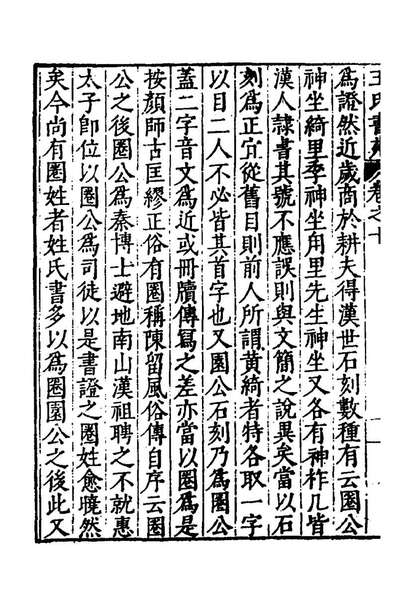 王氏書苑 卷之十
為證然近歲商於耕夫得漢世石刻數種有云圈公
神坐綺里季神坐甪里先生神坐又各有神柞几皆
漢人隷書其號不應誤則與文簡之說異矣當以石
刻為正宜從舊目則前人所謂黄綺者特各取一字
以目二人不必皆其首字也又園公石刻乃為圈公
蓋二字音文為近或冊牘傳寫之差亦當以圈為是
按顏師古匡繆正俗有圈稱陳留風俗傳自序云圈
公之後圈公為秦博士避地南山漢祖聘之不就惠
太子即位以圈公為司徒以是書證之圈姓愈曉然
矣今尚有圈姓者姓氏書多以為圈園公之後此又